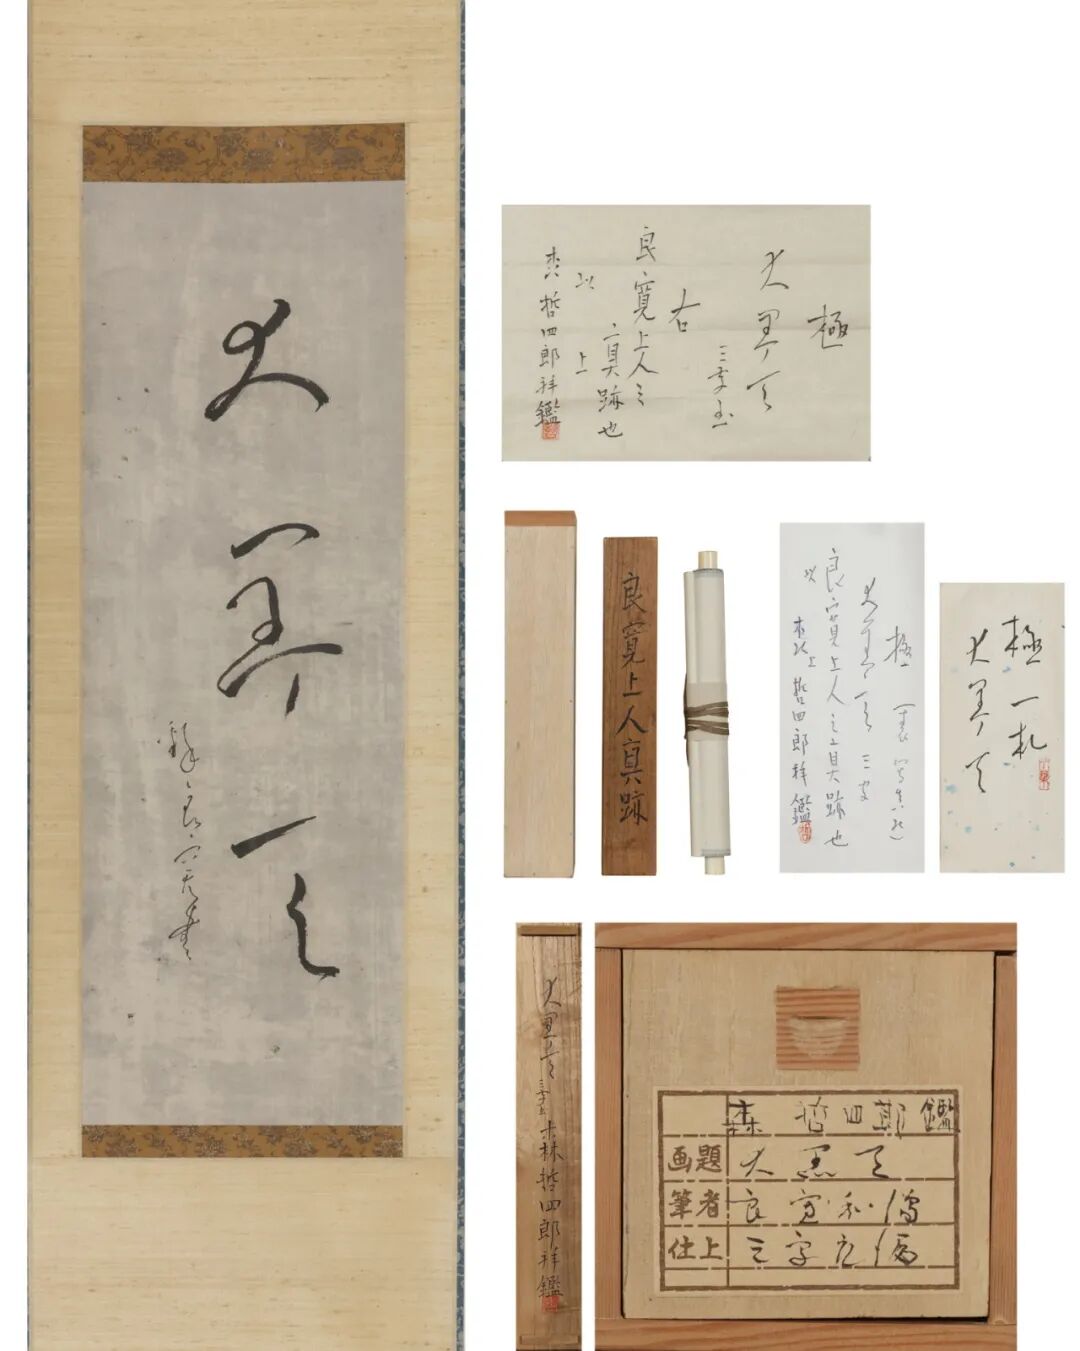 大黒天
釈良寛書
極
大黒天
三字書
右
良寛上人之
真跡也
以上
森哲四郎拝鑑
良寛上人真跡
極
大黒天 三字
良寛上人之真跡也
以上
森哲四郎拝鑑
極一札
大黒天
大黒天
森哲四郎拝鑑
森哲四郎鑑
画題 大黒天
筆者 良寛和尚
仕上 三字